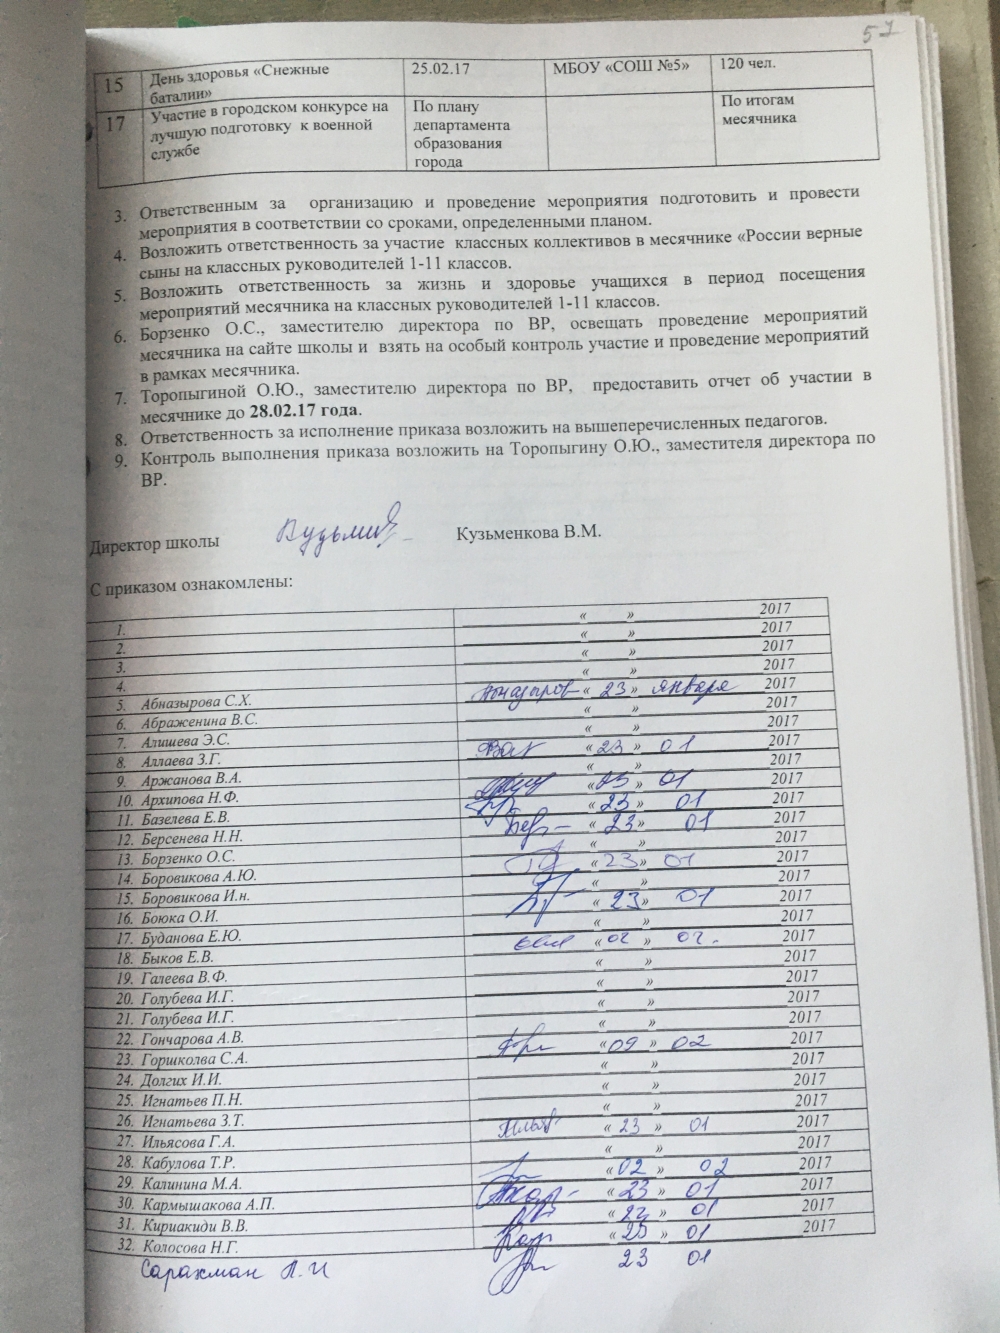 57
15 День здоровья «Снежные 25.02.17 МБОУ «СОШ №5» 120 чел.
баталии»
17 Участие в городском конкурсе на По плану По итогам
лучшую подготовку к военной департамента месячника
службе образования
города
3. Ответственным за организацию и проведение мероприятия подготовить и провести
мероприятия в соответствии со сроками, определенными планом.
4. Возложить ответственность за участие классных коллективов в месячнике «России верные
сыны на классных руководителей 1-11 классов.
5. Возложить ответственность за жизнь и здоровье учащихся в период посещения
мероприятий месячника на классных руководителей 1-11 классов.
6. Борзенко О.С., заместителю директора по ВР, освещать проведение мероприятий
месячника на сайте школы и взять на особый контроль участие и проведение мероприятий
в рамках месячника.
7. Торопыгиной О.Ю., заместителю директора по ВР, предоставить отчет об участии в
месячнике до 28.02.17 года.
8. Ответственность за исполнение приказа возложить на вышеперечисленных педагогов.
9. Контроль выполнения приказа возложить на Торопыгину О.Ю., заместителя директора по
ВР.
Директор школы Кузьменкова В.М.
С приказом ознакомлены:
1. « » 2017
2. « » 2017
3. « » 2017
4. « » 2017
5. Абназырова С.Х. « 23 » января 2017
6. Абраженина В.С. « » 2017
7. Алишева Э.С. « » 2017
8. Аллаева З.Г. « 23 » 01 2017
9. Аржанова В.А. « » 2017
10. Архипова Н.Ф. « 23 » 01 2017
11. Базелева Е.В. « 23 » 01 2017
12. Берсенева Н.Н. « 23 » 01 2017
13. Борзенко О.С. « » 2017
14. Боровикова А.Ю. « 23 » 01 2017
15. Боровикова И.н. « » 2017
16. Боюка О.И. « 23 » 01 2017
17. Буданова Е.Ю. « » 2017
18. Быков Е.В. « 02 » 02. 2017
19. Галеева В.Ф. « » 2017
20. Голубева И.Г. « » 2017
21. Голубева И.Г. « » 2017
22. Гончарова А.В. « » 2017
23. Горшколва С.А. « 09 » 02 2017
24. Долгих И.И. « » 2017
25. Игнатьев П.Н. « » 2017
26. Игнатьева З.Т. « » 2017
27. Ильясова Г.А. « 23 » 01 2017
28. Кабулова Т.Р. « » 2017
29. Калинина М.А. « 02 » 02 2017
30. Кармышакова А.П. « 23 » 01 2017
31. Кириакиди В.В. « 23 » 01 2017
32. Колосова Н.Г. « 25 » 01 2017
Сарахман Л.И 23 01